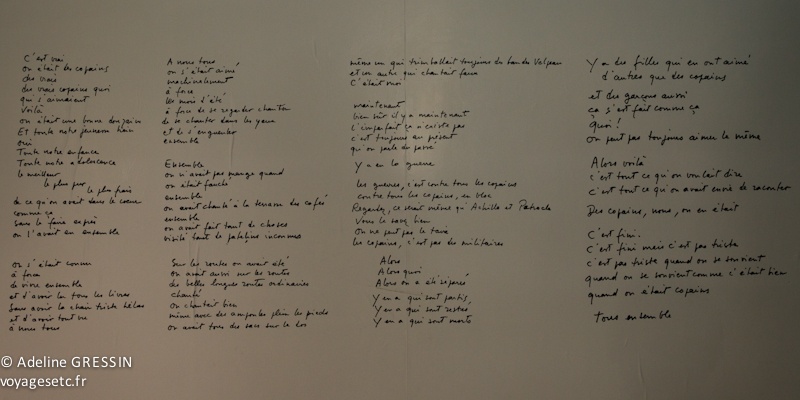 C'est vrai
on était les copains
des vrais
des vrais copains quoi
qui s'aimaient
Voilà
on était une bonne douzaine
Et toute notre jeunesse hein
oui
Toute notre enfance
Toute notre adolescence
le meilleur
le plus pur
le plus frais
de ce qu'on avait dans le cœur
comme ça
sans le faire exprès
on l'avait eu ensemble
on s'était connu
à force
de vivre ensemble
et d'avoir lu tous les livres
sans avoir la chair triste hélas
et d'avoir tout vu
à nous tous
A nous tous
on s'était aimé
machinalement
à force
les mois d'été
à force de se regarder chanter
de se chanter dans les yeux
et de s'engueuler
ensemble
Ensemble
on n'avait pas mangé quand
on était fauché
ensemble
on avait chanté à la terrasse des cafés
ensemble
on avait fait tant de choses
visité tant de patelins inconnus
Sur les routes on avait été
on avait aussi sur les routes
des belles longues routes ordinaires
chanté
on chantait bien
même avec des ampoules plein les pieds
on avait tous des sacs sur le dos
même un qui trimballait toujours des bandes Velpeau
et un autre qui chantait faux
C'était moi
maintenant
bien sûr il y a maintenant
L'imparfait ça n'existe pas
c'est toujours au présent
qu'on parle du passé
Y a eu la guerre
les guerres, c'est contre tous les copains
contre tous les copains, en bloc
Regardez, ce serait même qu'Achille et Patrocle
Vous le savez bien
On ne peut pas le taire
les copains, c'est pas des militaires
Alors
Alors quoi
Alors on a été séparés
Y en a qui sont partis,
Y en a qui sont restés
Y en a qui sont morts
Y a des filles qui en ont aimé
d'autres que des copains
et des garçons aussi
ça s'est fait comme ça
Quoi !
On peut pas toujours aimer le même
Alors voilà
c'est tout ce qu'on voulait dire
c'est tout ce qu'on avait envie de raconter
Des copains, nous, on en était
C'est fini.
C'est fini mais c'est pas triste
c'est pas triste quand on se souvient
quand on se souvient comme c'était bien
quand on était copains
tous ensemble
© Adeline GRESSIN
voyagesetc.fr